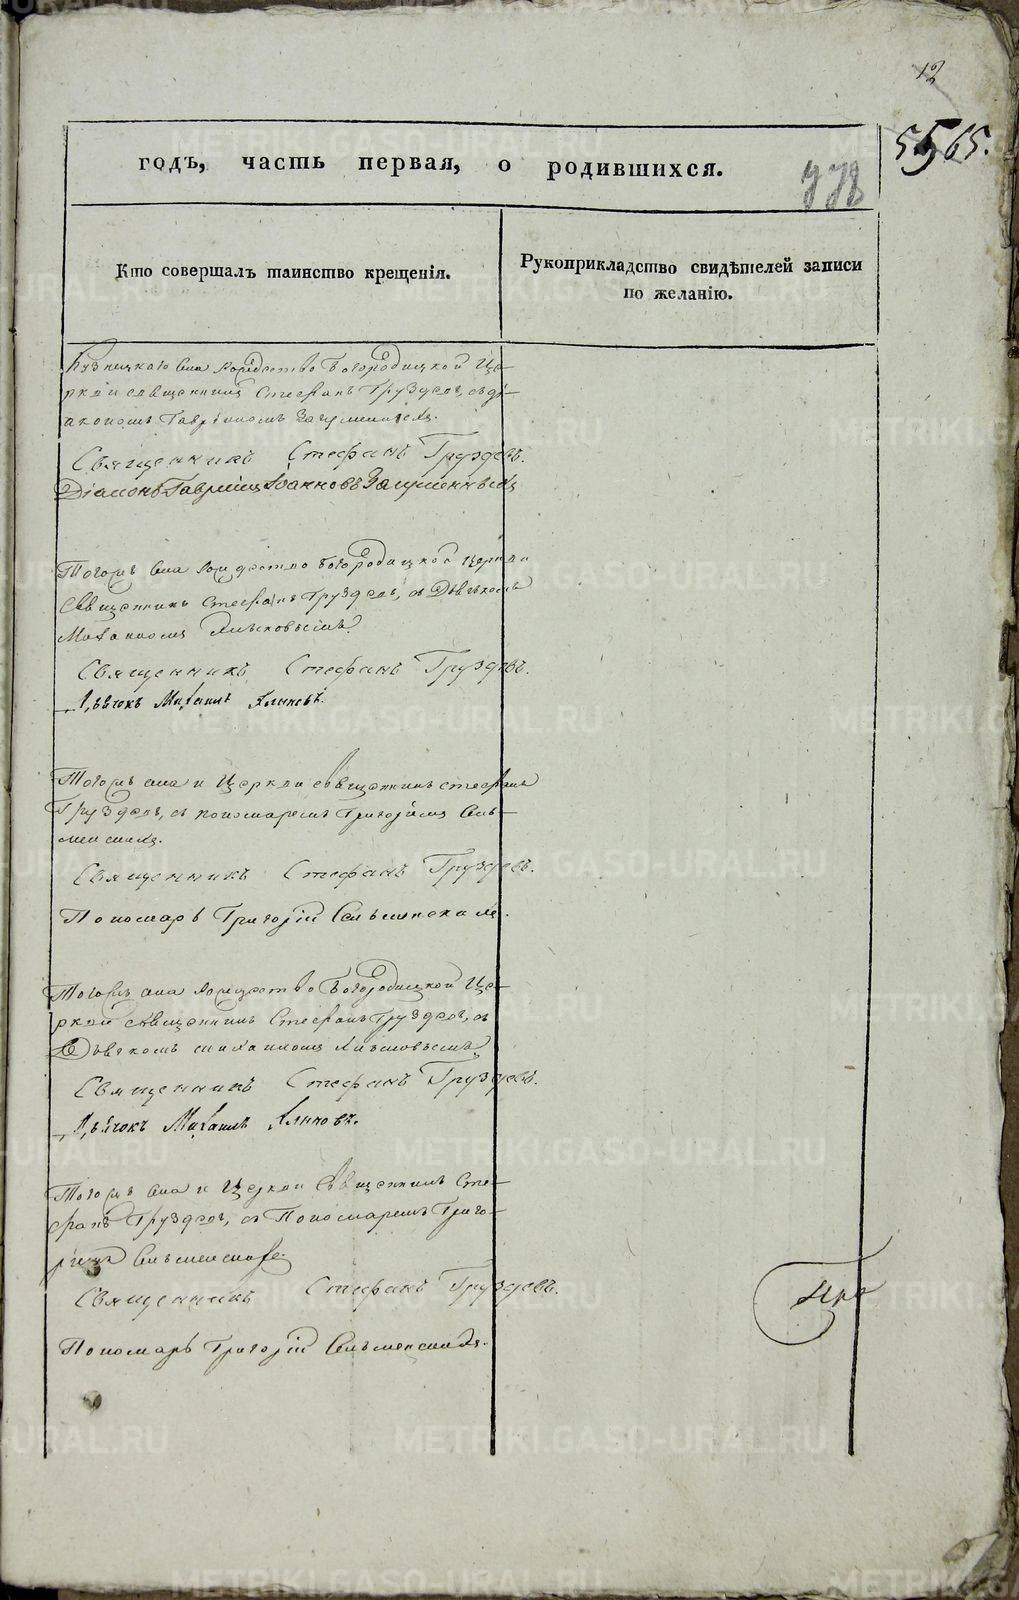 12
5565.
годъ, часть первая, о родившихся.
778
Кто совершалъ таинство крещенія.
Рукоприкладство свидѣтелей записи
по желанію.
села Рождество Богородицкой Це-
ркви священникъ Стефанъ Груздевъ, съ ді-
акономъ Гавріиломъ
Священникъ Стефанъ Груздевъ.
Діаконъ Гавріилъ Іоанновъ
Тогожъ села Рождество Богородицкой Церкви
Священникъ Стефанъ Груздевъ, съ Дьячкомъ
Михаиломъ
Священникъ Стефанъ Груздевъ.
Дьячокъ Михаилъ
Тогожъ села и Церкви священникъ Стефанъ
Груздевъ, съ пономаремъ Григоріемъ
Священникъ Стефанъ Груздевъ.
Пономарь Григорій
Тогожъ села Рождество Богородицкой Це-
ркви священникъ Стефанъ Груздевъ, съ
Дьячкомъ Михаиломъ
Священникъ Стефанъ Груздевъ.
Дьячокъ Михаилъ
Тогожъ села и Церкви Священникъ Сте-
фанъ Груздевъ, съ Пономаремъ Григо-
Священникъ Стефанъ Груздевъ.
Пономарь Григорій
METRIKI.GASO-URAL.RU